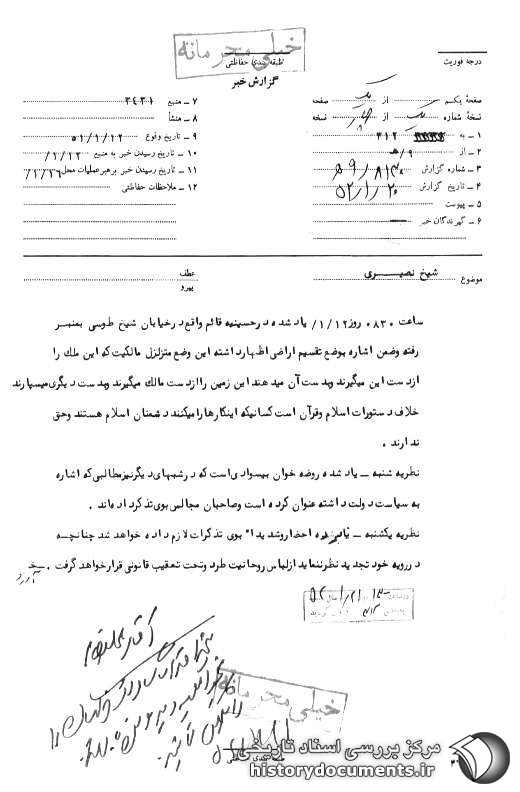 خیلی محرمانه
طبقه بندی حفاظتی
درجه فوریت
گزارش خبر
صفحهٔ یکم از یک صفحه
نسخهٔ شماره یک از چهار نسخه
۱ ـ به ۳۱۲
۲ ـ از ۹/ﻫ
۳ ـ شماره گزارش
۴ ـ تاریخ گزارش ۵۲/۱/۲۰
۵ ـ پیوست
۶ ـ گیرندگان خبر
۷ ـ منبع ۳۴۳۱
۸ ـ منشأ
۹ ـ تاریخ وقوع ۵۱/۱/۱۲
۱۰ ـ تاریخ رسیدن خبر به منبع ۱/۱۲/
۱۱ ـ تاریخ رسیدن خبر به رهبر عملیات محل
۱۲ ـ ملاحظات حفاظتی
موضوع شیخ نصیری
عطف
پیرو
ساعت ۰۸۳۰ روز ۱/۱۲/ یاد شده در حسینیه قائم واقع در خیابان شیخ طوسی بمنبر
رفته و ضمن اشاره بوضع تقسیم اراضی اظهار داشته این وضع متزلزل مالکیت که این ملک را
ازدست این میگیرند وبدست آن میدهند این زمین را ازدست مالک میگیرند وبدست دیگری میسپارند
خلاف دستورات اسلام وقرآن است کسانیکه اینکارها را میکنند دشمنان اسلام هستند وحق
ندارند .
نظریه شنبه ـ یاد شده روضه خوان بیسوادی است که در شبهای دیگر نیز مطالبی که اشاره
به سیاست دولت داشته عنوان کرده است وصاحبان مجالس بوی تذکر داده اند .
نظریه یکشنبه ـ نامبرده احضار وشدیدا" بوی تذکرات لازم داده خواهد شد چنانچه
در رویه خود تجدید نظر ننماید از لباس روحانیت طرد وتحت تعقیب قانونی قرار خواهد گرفت .
خیلی محرمانه
طبقه بندی حفاظتی
مرکز بررسی اسناد تاریخی
historydocuments.ir